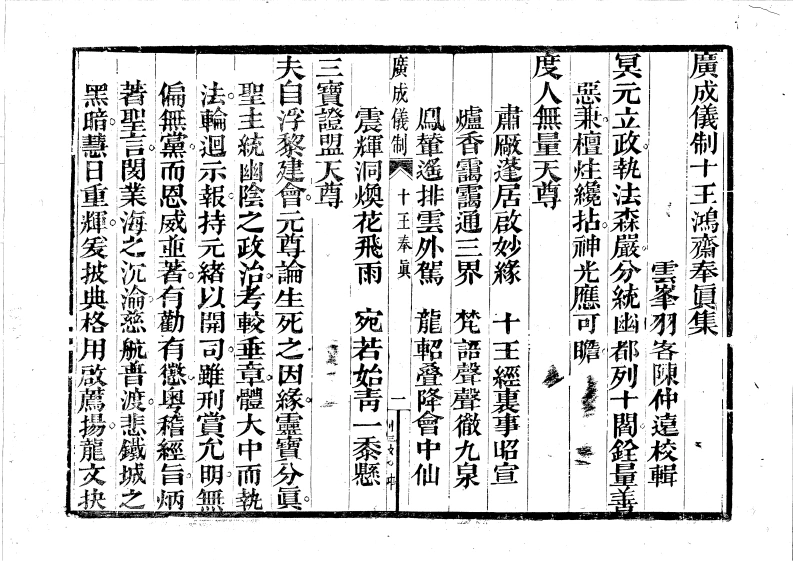 廣成儀制十王鴻齋奉眞集
雲峯羽客陳仲遠校輯
冥元立政執法森嚴分統幽都列十閻銓量善
惡兼檀炷纔拈神光應可瞻
度人無量天尊
肅厰蓬居啟妙緣 十王經裏事昭宣
爐香靄靄通三界 梵語聲聲徹九泉
鳳輦遙排雲外駕 龍軺叠降會中仙
廣成儀制 十王奉眞 一
震輝洞煥花飛雨 宛若始靑一黍懸
三寶證盟天尊
夫自浮黎建會元尊論生死之因緣靈寶分眞
聖主統幽陰之政治考較垂章體大中而執
法輪迴示報持元緒以開司雖刑賞允明無
偏無黨而恩威並著有勸有懲粵稽經旨炳
著聖言閔業海之沉淪慈航普渡悲鐵城之
黑暗慧日重輝爰披典格用啟薦揚龍文抉